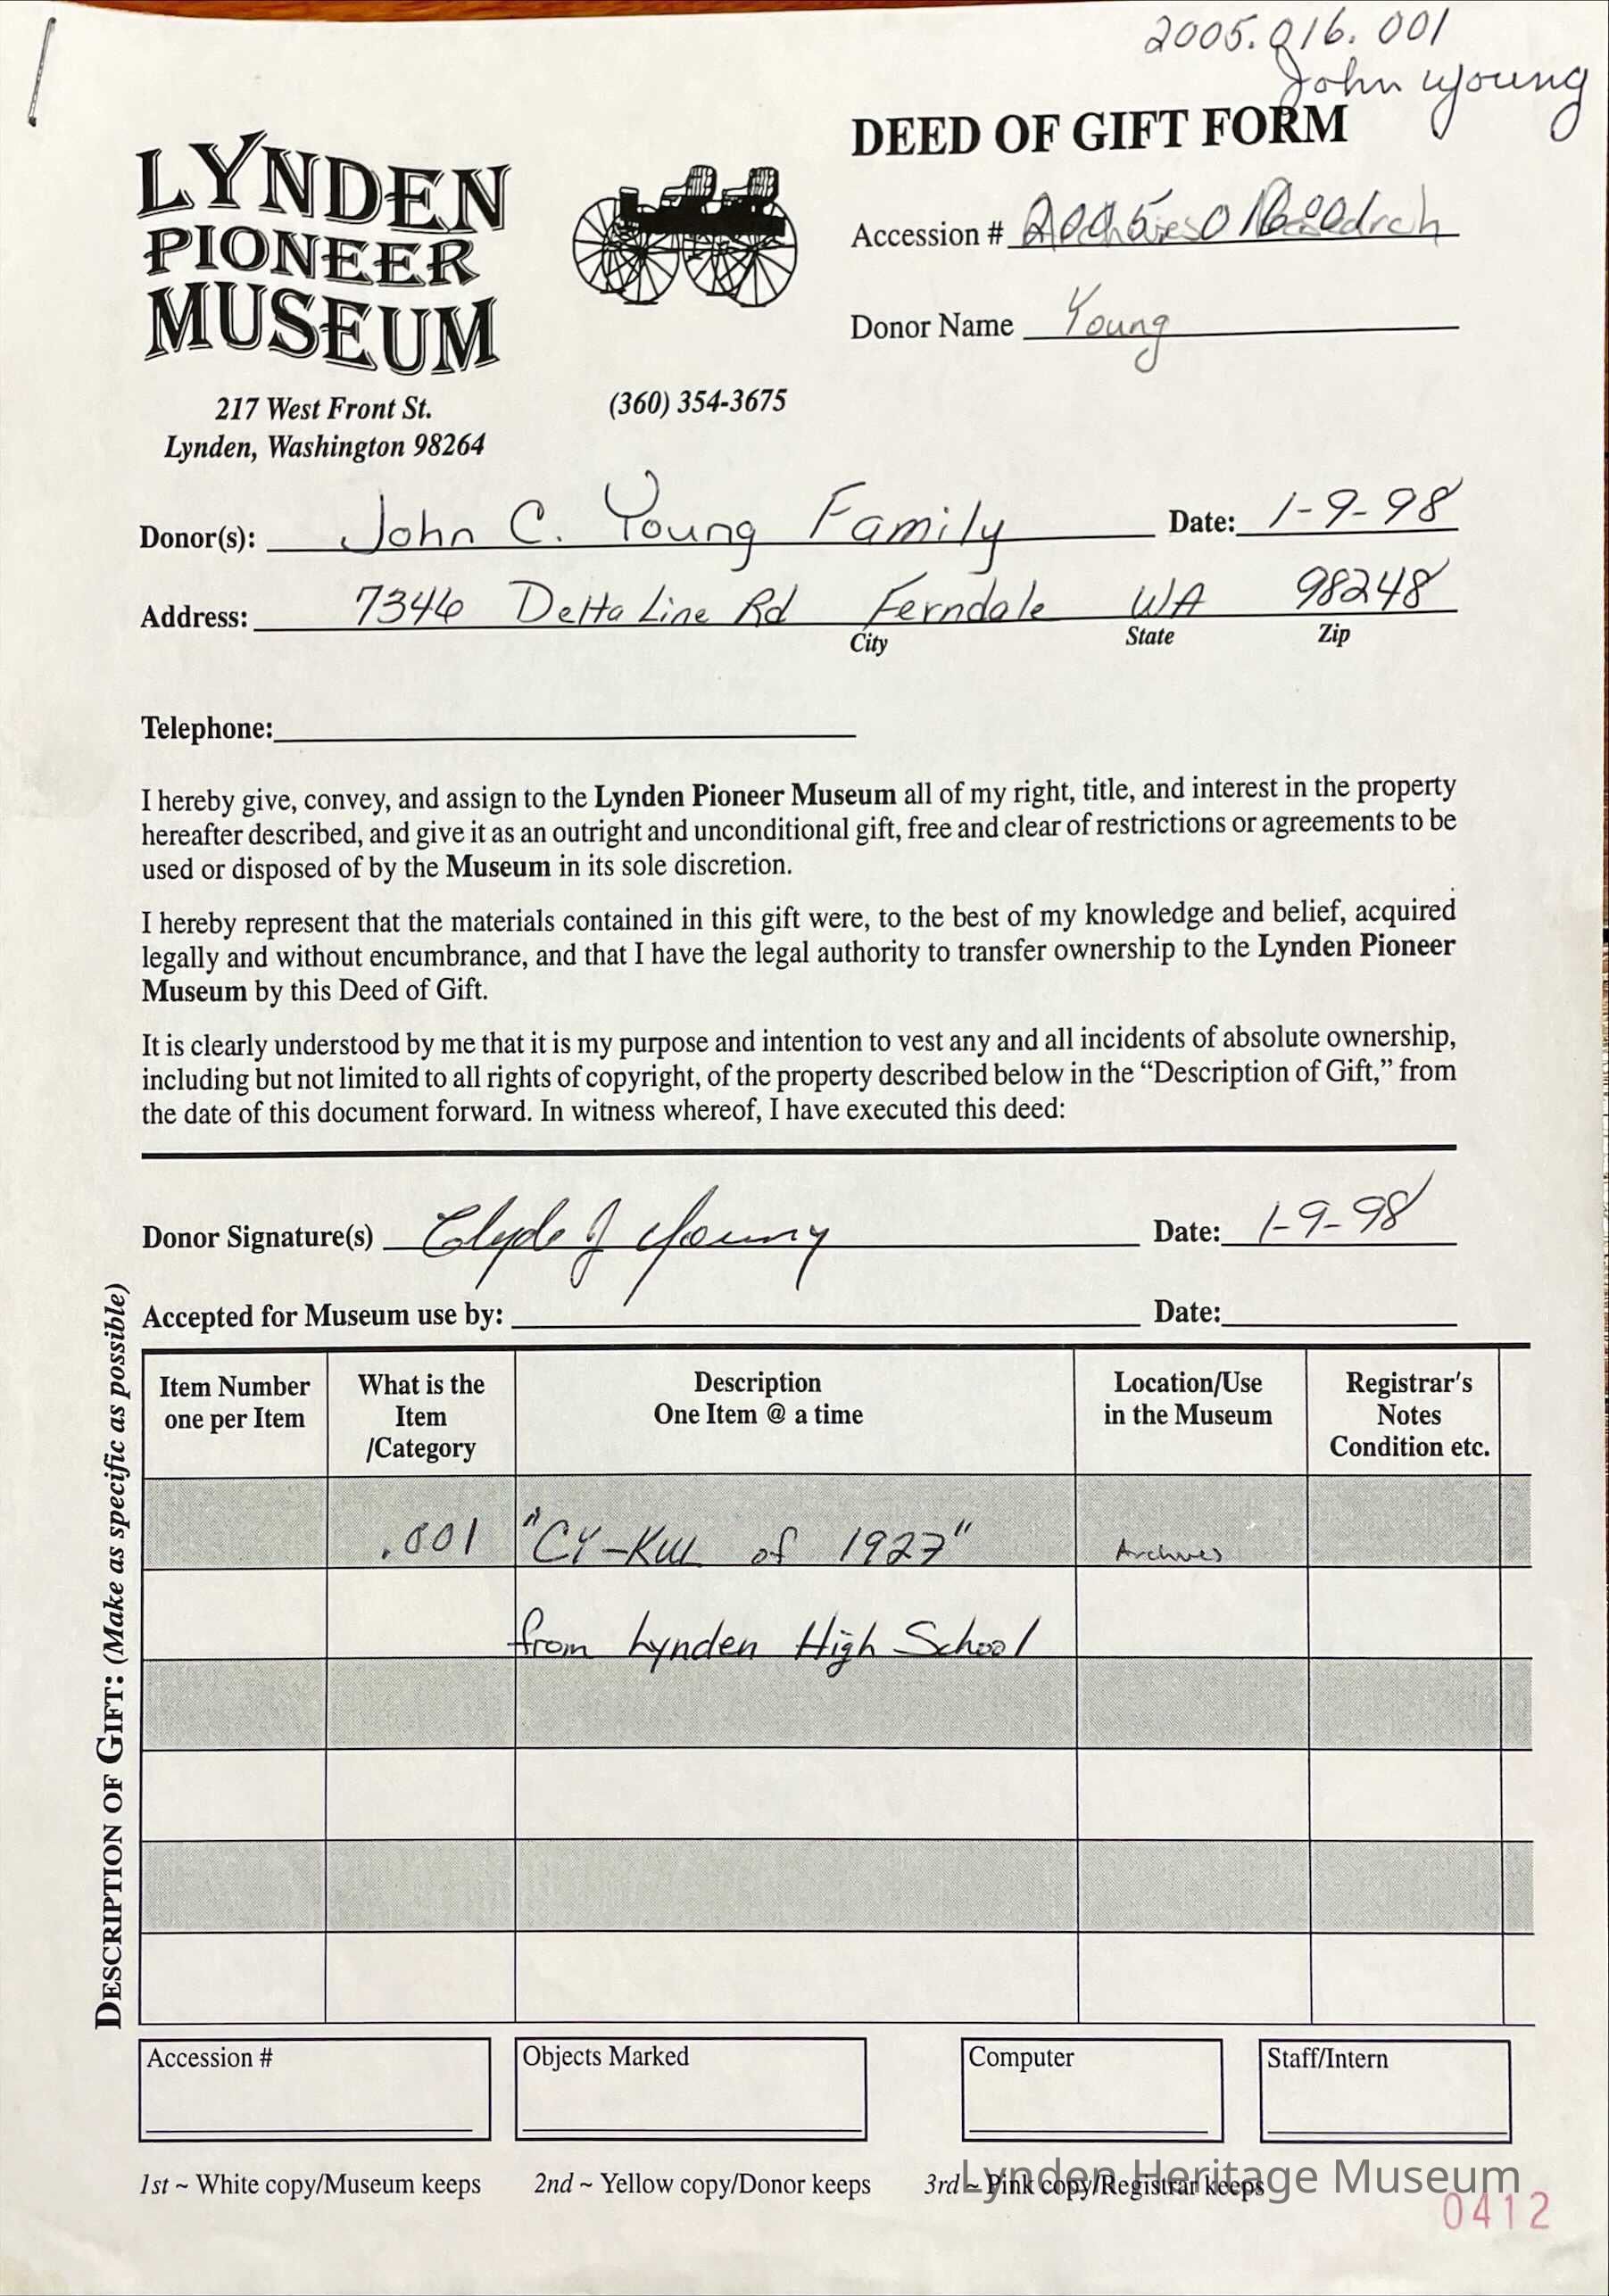 2005.016.001
John Young
LYNDEN
PIONEER
MUSEUM
217 West Front St.
Lynden, Washington 98264
(360) 354-3675
DEED OF GIFT FORM
Accession # 2005.016.001
Donor Name Young
Donor(s): John C. Young Family Date: 1-9-98
Address: 7346 Delta Line Rd Ferndale WA 98248
City State Zip
Telephone:
I hereby give, convey, and assign to the Lynden Pioneer Museum all of my right, title, and interest in the property
hereafter described, and give it as an outright and unconditional gift, free and clear of restrictions or agreements to be
used or disposed of by the Museum in its sole discretion.
I hereby represent that the materials contained in this gift were, to the best of my knowledge and belief, acquired
legally and without encumbrance, and that I have the legal authority to transfer ownership to the Lynden Pioneer
Museum by this Deed of Gift.
It is clearly understood by me that it is my purpose and intention to vest any and all incidents of absolute ownership,
including but not limited to all rights of copyright, of the property described below in the “Description of Gift,” from
the date of this document forward. In witness whereof, I have executed this deed:
Donor Signature(s) Clyde J Young Date: 1-9-98
Accepted for Museum use by: Date:
DESCRIPTION OF GIFT: (Make as specific as possible)
Item Number one per Item
What is the Item /Category
Description One Item @ a time
Location/Use in the Museum
Registrar's Notes Condition etc.
.001 "CY-KLL of 1927" Archives
from Lynden High School
Accession # Objects Marked Computer Staff/Intern
1st ~ White copy/Museum keeps 2nd ~ Yellow copy/Donor keeps 3rd ~ Pink copy/Registrar keeps
Lynden Heritage Museum
0412